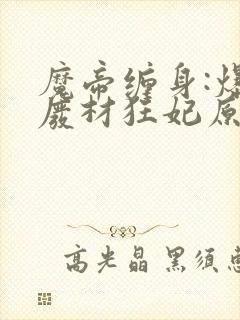 魔帝缠身:爆
废材狂妃原
高光晶 黑须